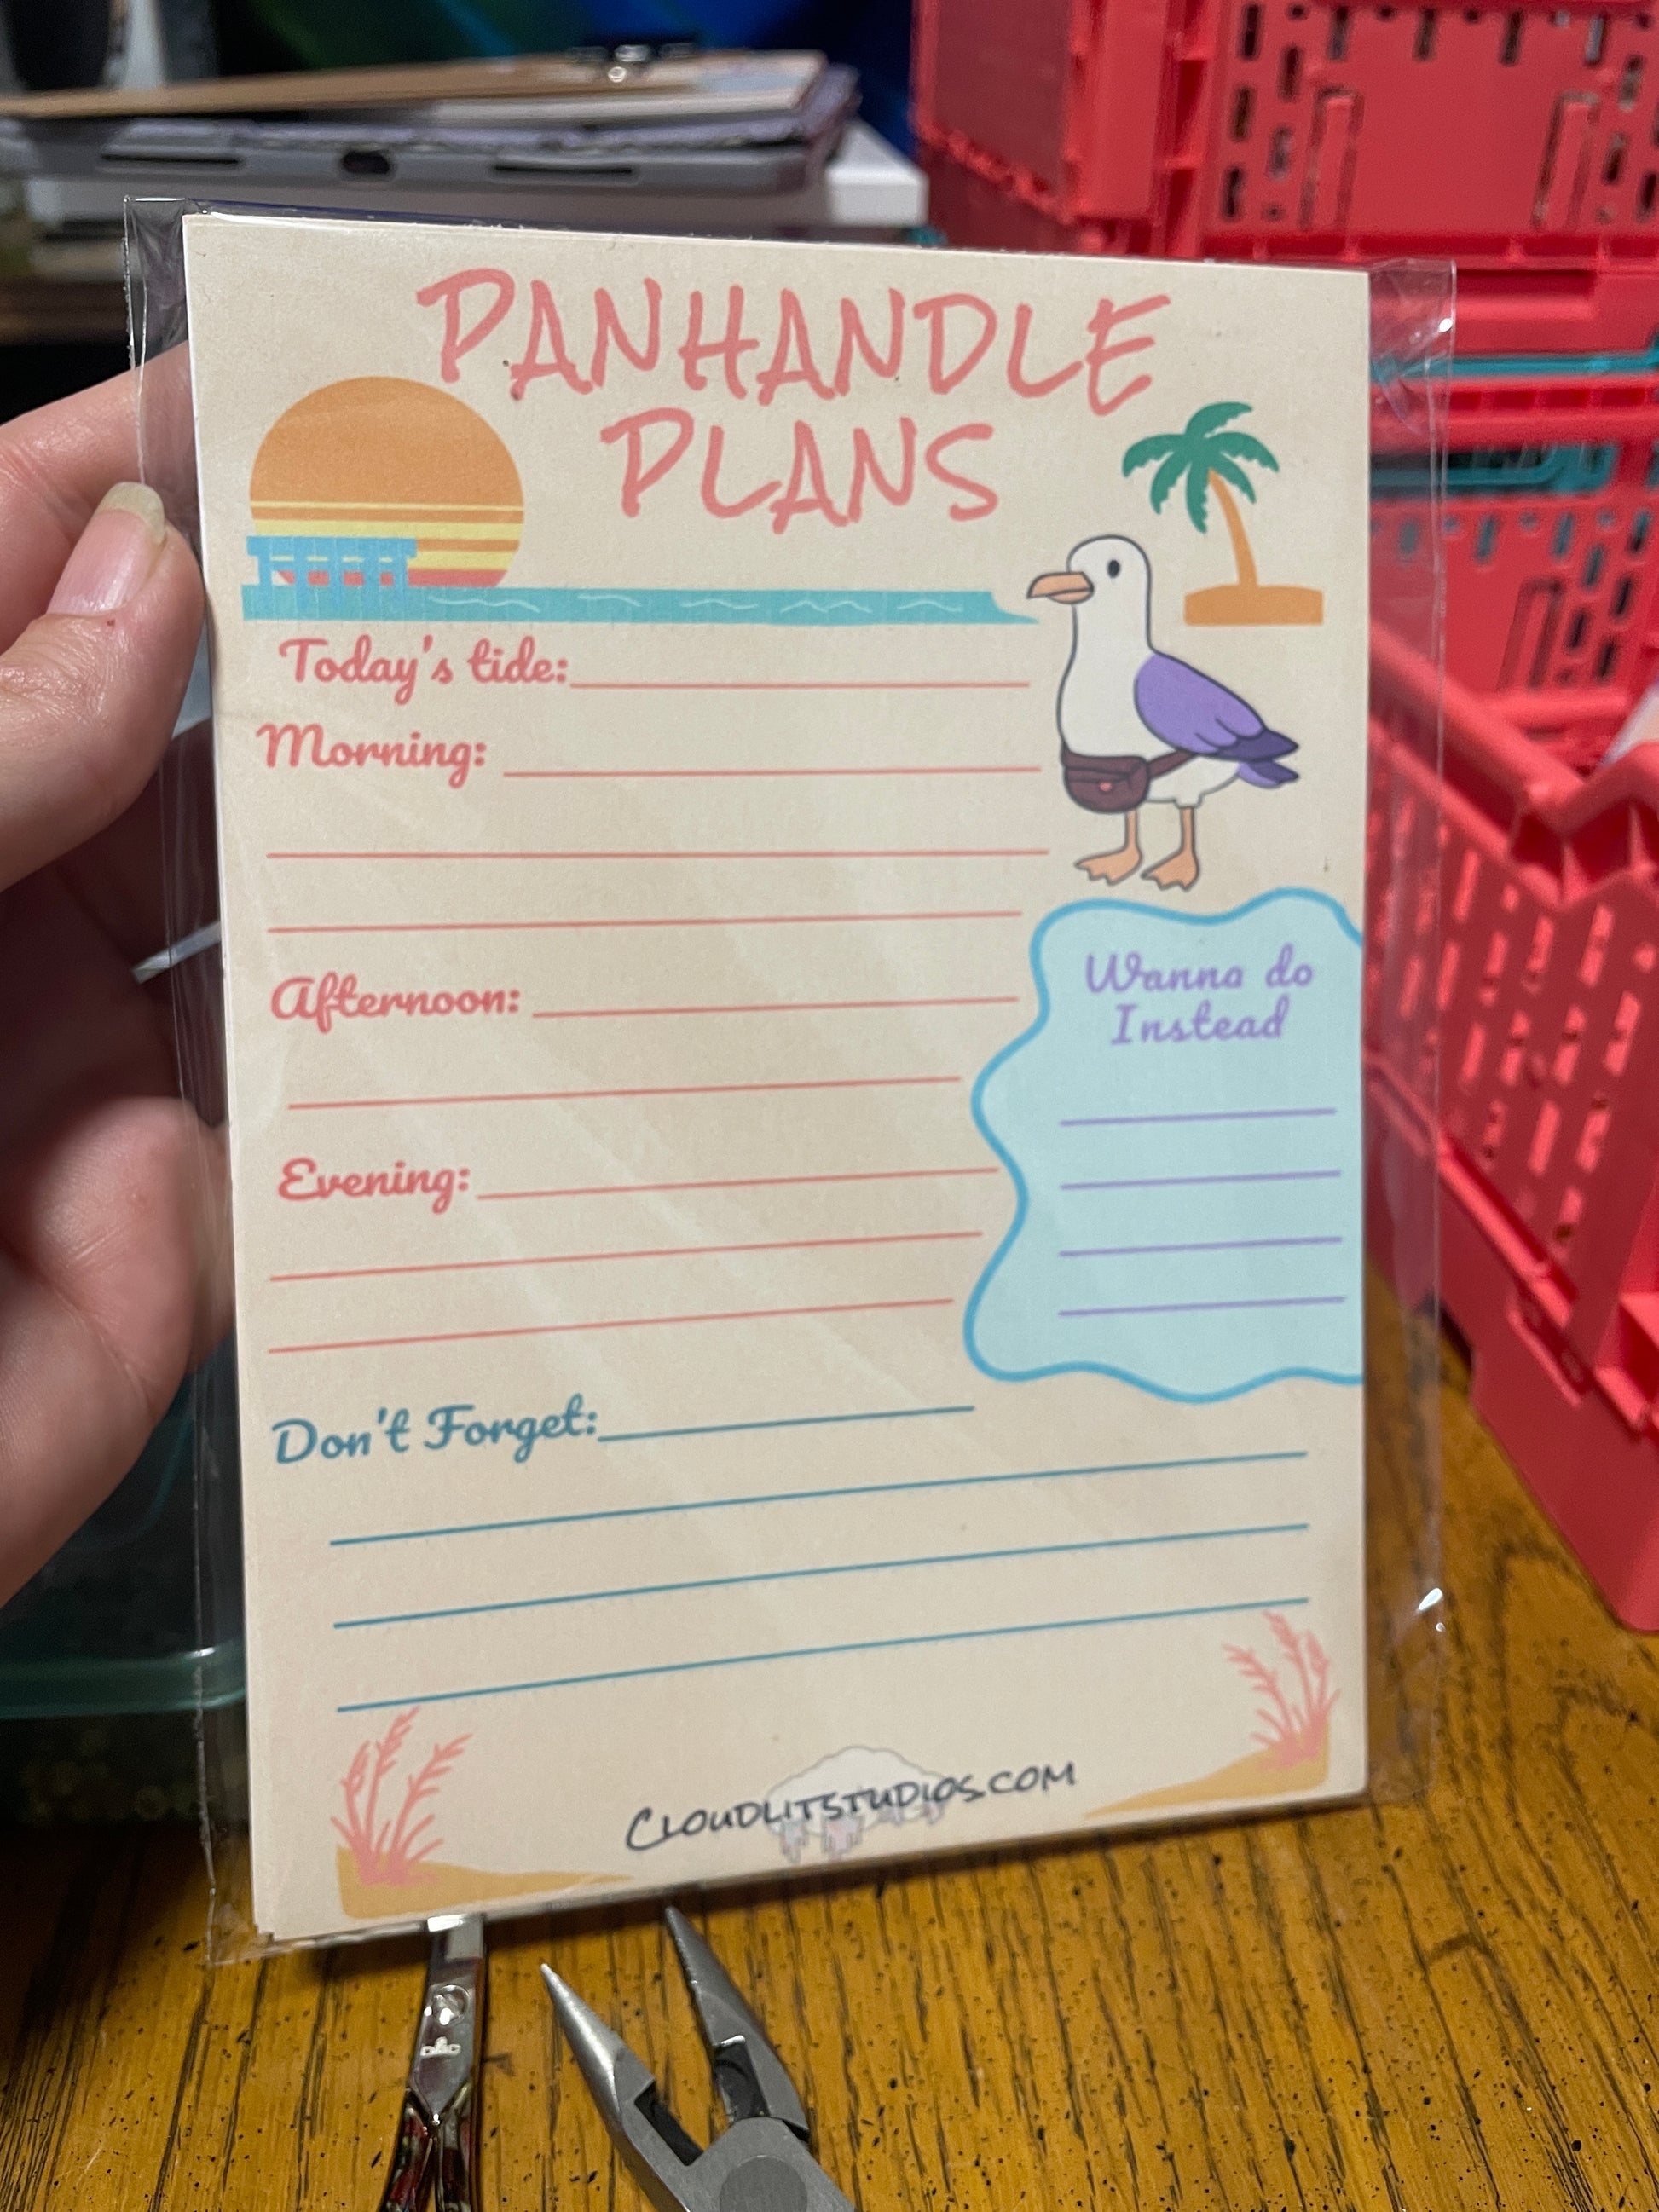 PANHANDLE
PLANS
Today's tide:
Morning:
Afternoon:
Wanna do
Instead
Evening:
Don't Forget:
CLOUDLITSTUDIOS.COM
DMC